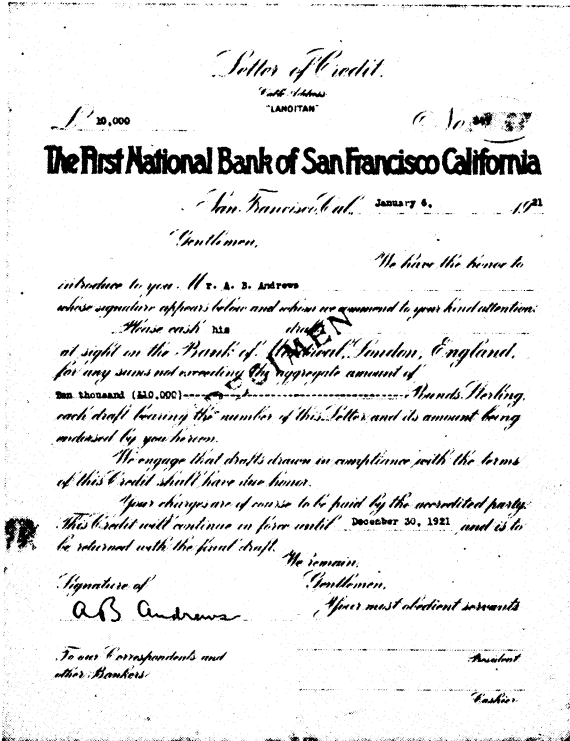 Letter of Credit.
Cable Address
"LANOITAN"
£ 10,000 No.
The First National Bank of San Francisco California
San Francisco, Cal. January 6, 1921
Gentlemen,
We have the honor to
introduce to you Mr. A. B. Andrews
whose signature appears below and whom we commend to your kind attention.
Please cash his
at sight on the Bank of Montreal, London, England,
for any sums not exceeding the aggregate amount of
Ten thousand (£10,000)---------------------------- Pounds Sterling,
each draft bearing the number of this Letter and its amount being
endorsed by you hereon.
SPECIMEN
We engage that drafts drawn in compliance with the terms
of this Credit shall have due honor.
Your charges are of course to be paid by the accredited party.
This Credit will continue in force until December 30, 1921 and is to
be returned with the final draft.
We remain,
Signature of Gentlemen,
AB Andrews Your most obedient servants
To our Correspondents and President
other Bankers
Cashier